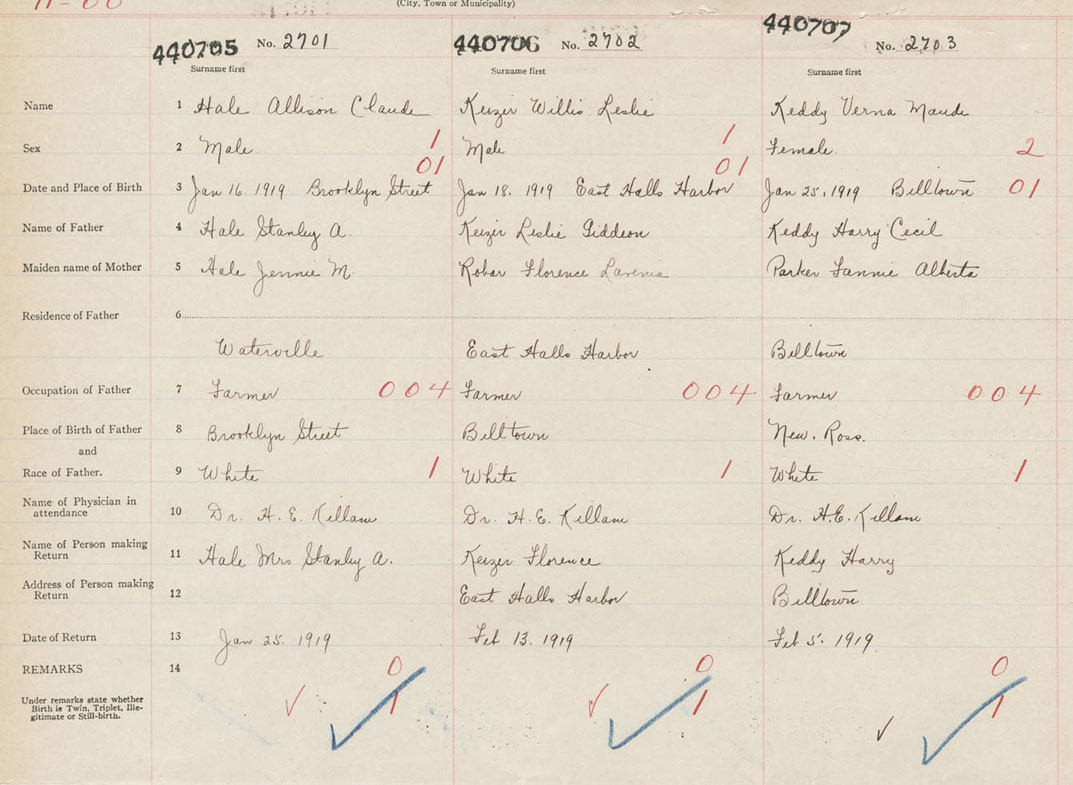 (City, Town or Municipality)
440705 No. 2701 440706 No. 2702 440707 No. 2703
Surname first Surname first Surname first
Name 1 Hale Allison Claude Keizer Willis Leslie Keddy Verna Maude
Sex 2 Male. 1 Male 1 Female. 2
01 01
Date and Place of Birth 3 Jan 16. 1919 Brooklyn Street Jan 18. 1919 East Halls Harbor Jan 25, 1919 Billtown 01
Name of Father 4 Hale Stanley A. Keizer Leslie Giddeon Keddy Harry Cecil
Maiden name of Mother 5 Hale Jennie M. Robar Florence Lavenia Parker Fannie Alberta
Residence of Father 6
Waterville East Halls Harbor Billtown
Occupation of Father 7 Farmer 004 Farmer 004 Farmer 004
Place of Birth of Father 8 Brooklyn Street Billtown New. Ross.
and
Race of Father. 9 White 1 White 1 White 1
Name of Physician in
attendance 10 Dr. H. E. Killam Dr. H. E. Killam Dr. H.E. Killam
Name of Person making
Return 11 Hale Mrs Stanley A. Keizer Florence Keddy Harry
Address of Person making
Return 12 East Halls Harbor Billtown
Date of Return 13 Jan 25. 1919 Feb 13. 1919 Feb 5. 1919
REMARKS 14 0 0 0
Under remarks state whether
Birth is Twin, Triplet, Ille-
gitimate or Still-birth. 1 1 1